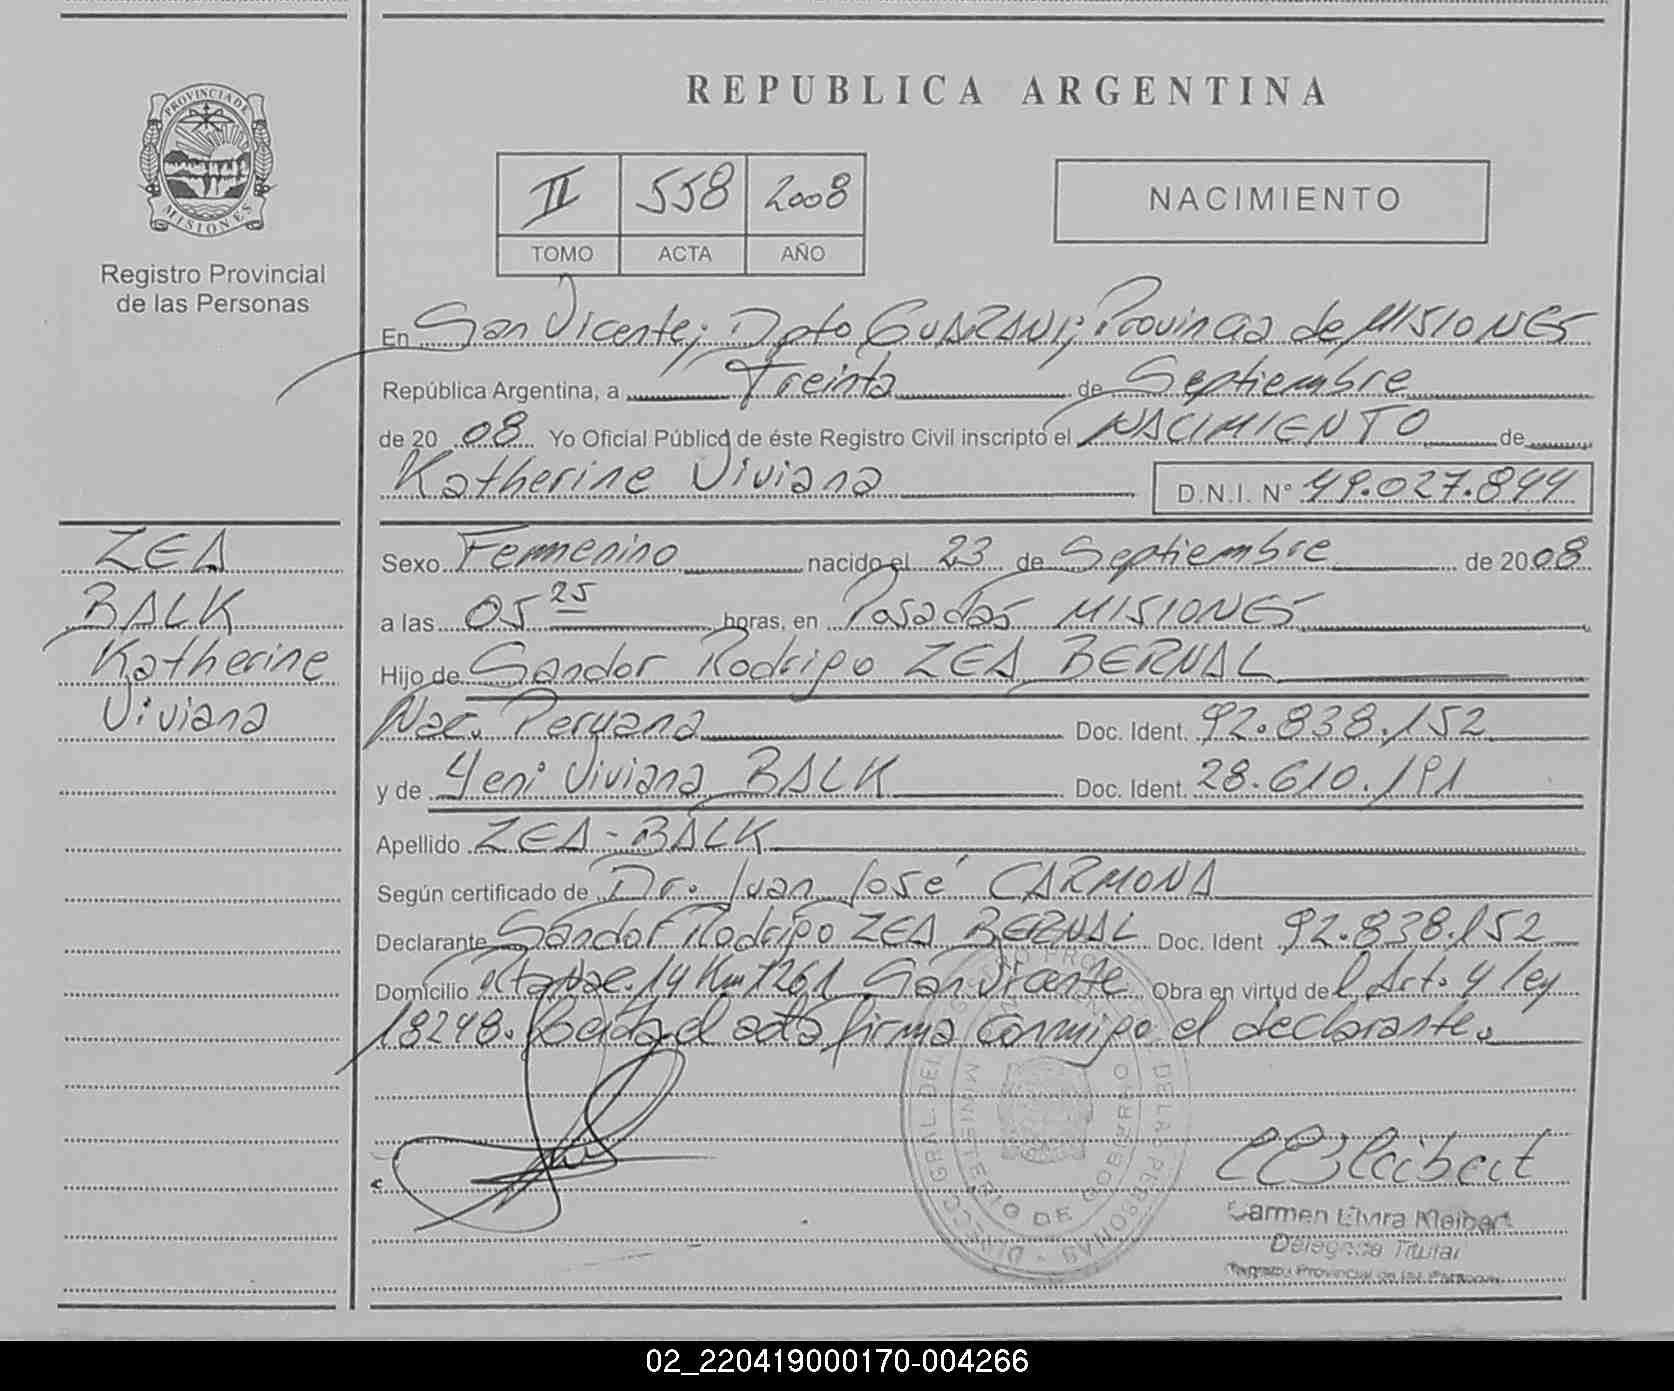 REPUBLICA ARGENTINA
PROVINCIA DE
MISIONES
Registro Provincial
de las Personas
II 558 2008
TOMO ACTA AÑO
NACIMIENTO
En San Vicente; Dpto GUARANI; Provincia de MISIONES
República Argentina, a Treinta de Septiembre
de 20 08 Yo Oficial Público de éste Registro Civil inscripto el NACIMIENTO de
Katherine Viviana D.N.I. Nº 49.027.844
ZEA
BALK
Katherine
Viviana
Sexo Femmenino nacido el 23 de Septiembre de 2008
a las 05 25 horas, en Posadas MISIONES
Hijo de Sandor Rodrigo ZEA BERNAL
Nac. Peruana Doc. Ident. 92.838.152
y de Yeni Viviana BALK Doc. Ident. 28.610.191
Apellido ZEA-BALK
Según certificado de Dr. Juan José CARMONA
Declarante Sandor Rodrigo ZEA BERNAL Doc. Ident 92.838.152
Domicilio 14 Km 1261 San Vicente Obra en virtud del Art. 4 ley
18248. Leida el acta firma conmigo el declarante.
MINISTERIO DE GOBIERNO
DE LAS PERSONAS - DIRECC GRAL DEL
Carmen Elvira Meibert
Delegada Titular
Registro Provincial de las Personas
02_220419000170-004266